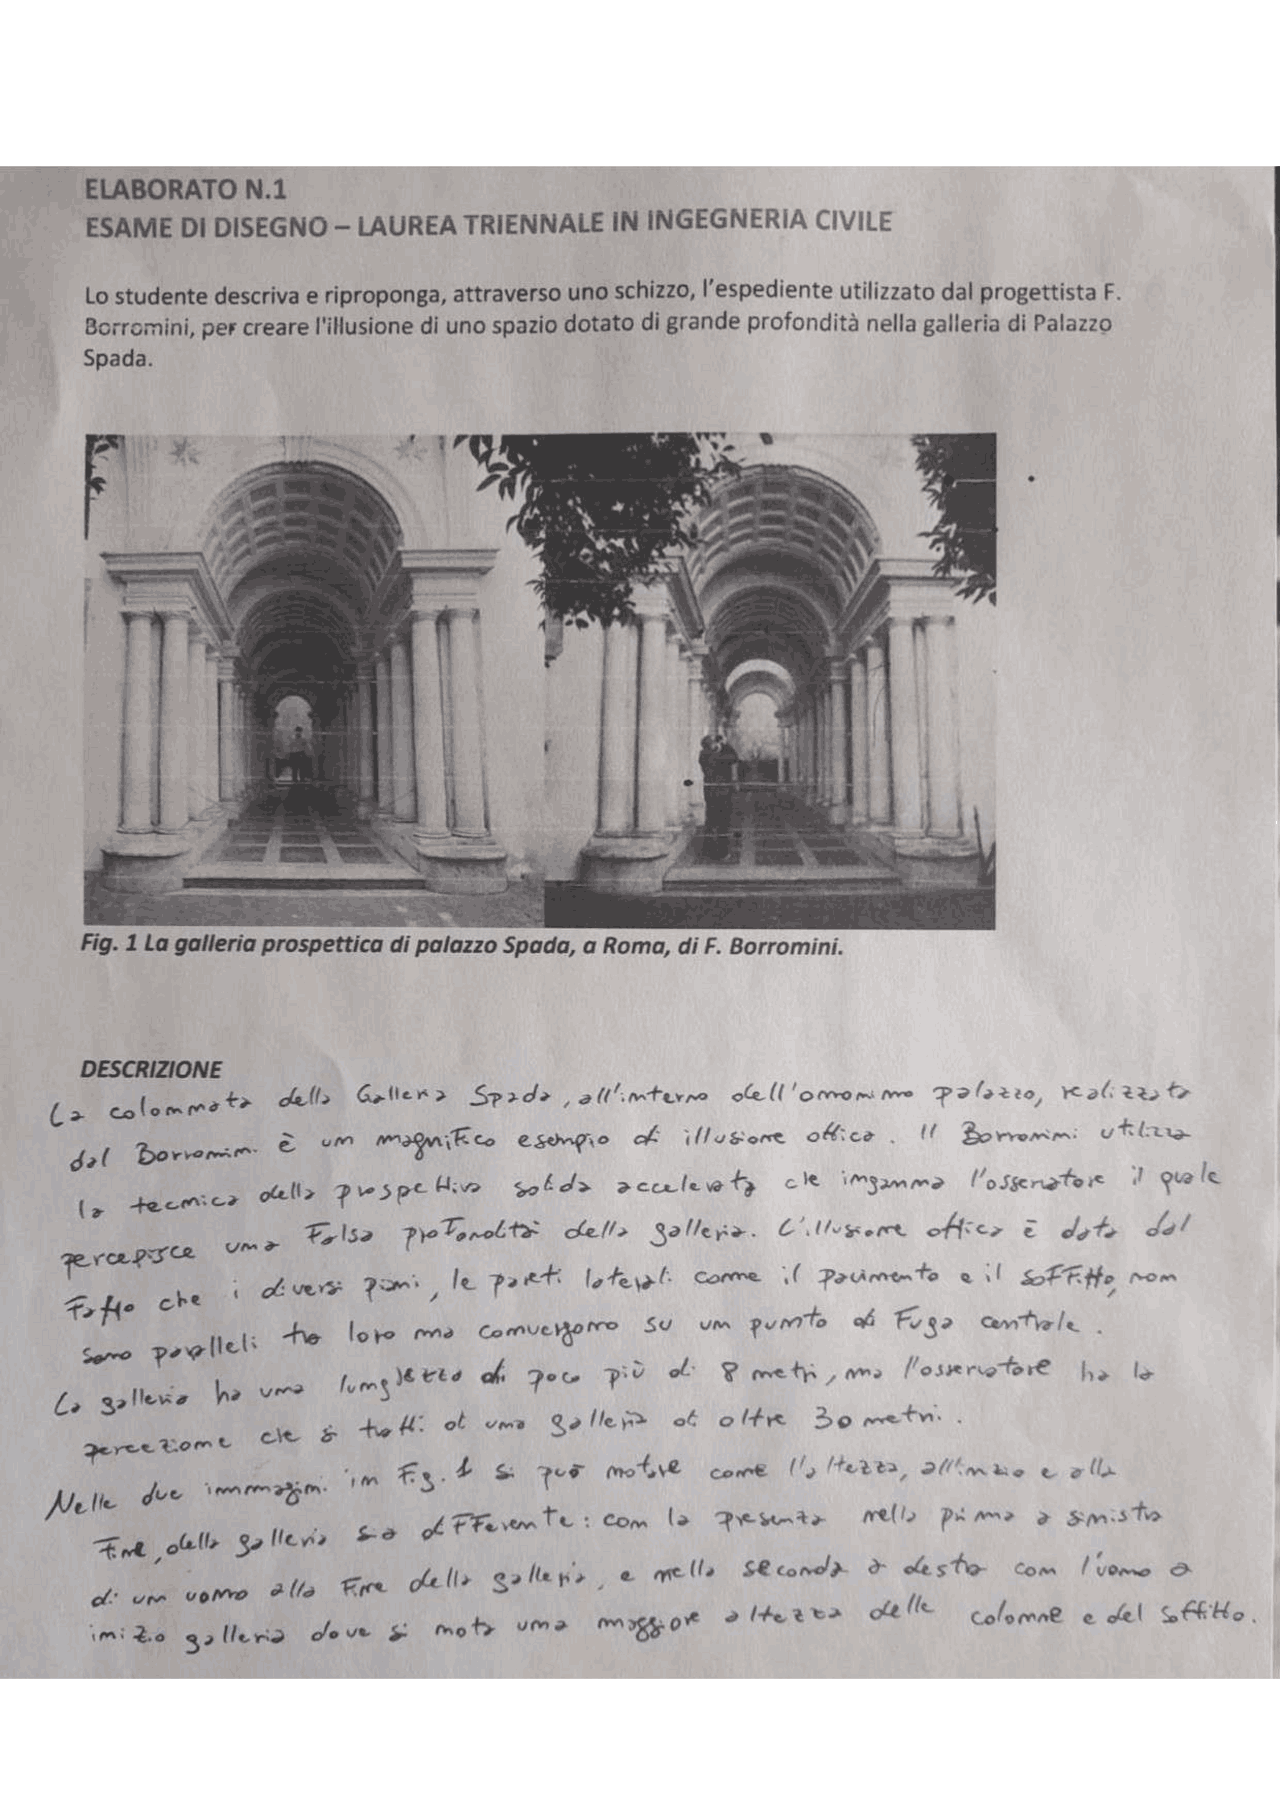 ELABORATO N.1
ESAME DI DISEGNO – LAUREA TRIENNALE IN INGEGNERIA CIVILE
Lo studente descriva e riproponga, attraverso uno schizzo, l'espediente utilizzato dal progettista F.
Borromini, per creare l'illusione di uno spazio dotato di grande profondità nella galleria di Palazzo
Spada.
Fig. 1 La galleria prospettica di palazzo Spada, a Roma, di F. Borromini.
DESCRIZIONE
La colonnata della Galleria Spada, all'interno dell'omonimo palazzo, realizzata
dal Borromini è un magnifico esempio di illusione ottica. Il Borromini utilizza
la tecnica della prospettiva solida accelerata che inganna l'osservatore il quale
percepisce una falsa profondità della galleria. L'illusione ottica è data dal
fatto che i diversi piani, le pareti laterali come il pavimento e il soffitto, non
sono paralleli tra loro ma convergono su un punto di fuga centrale.
La galleria ha una lunghezza di poco più di 8 metri, ma l'osservatore ha la
percezione che si tratti di una galleria di oltre 30 metri.
Nelle due immagini in Fig. 1 si può notare come l'altezza, all'inizio e alla
fine, della galleria sia differente: con la presenza nella prima a sinistra
di un uomo alla fine della galleria, e nella seconda a destra con l'uomo a
inizio galleria dove si nota una maggiore altezza delle colonne e del soffitto.